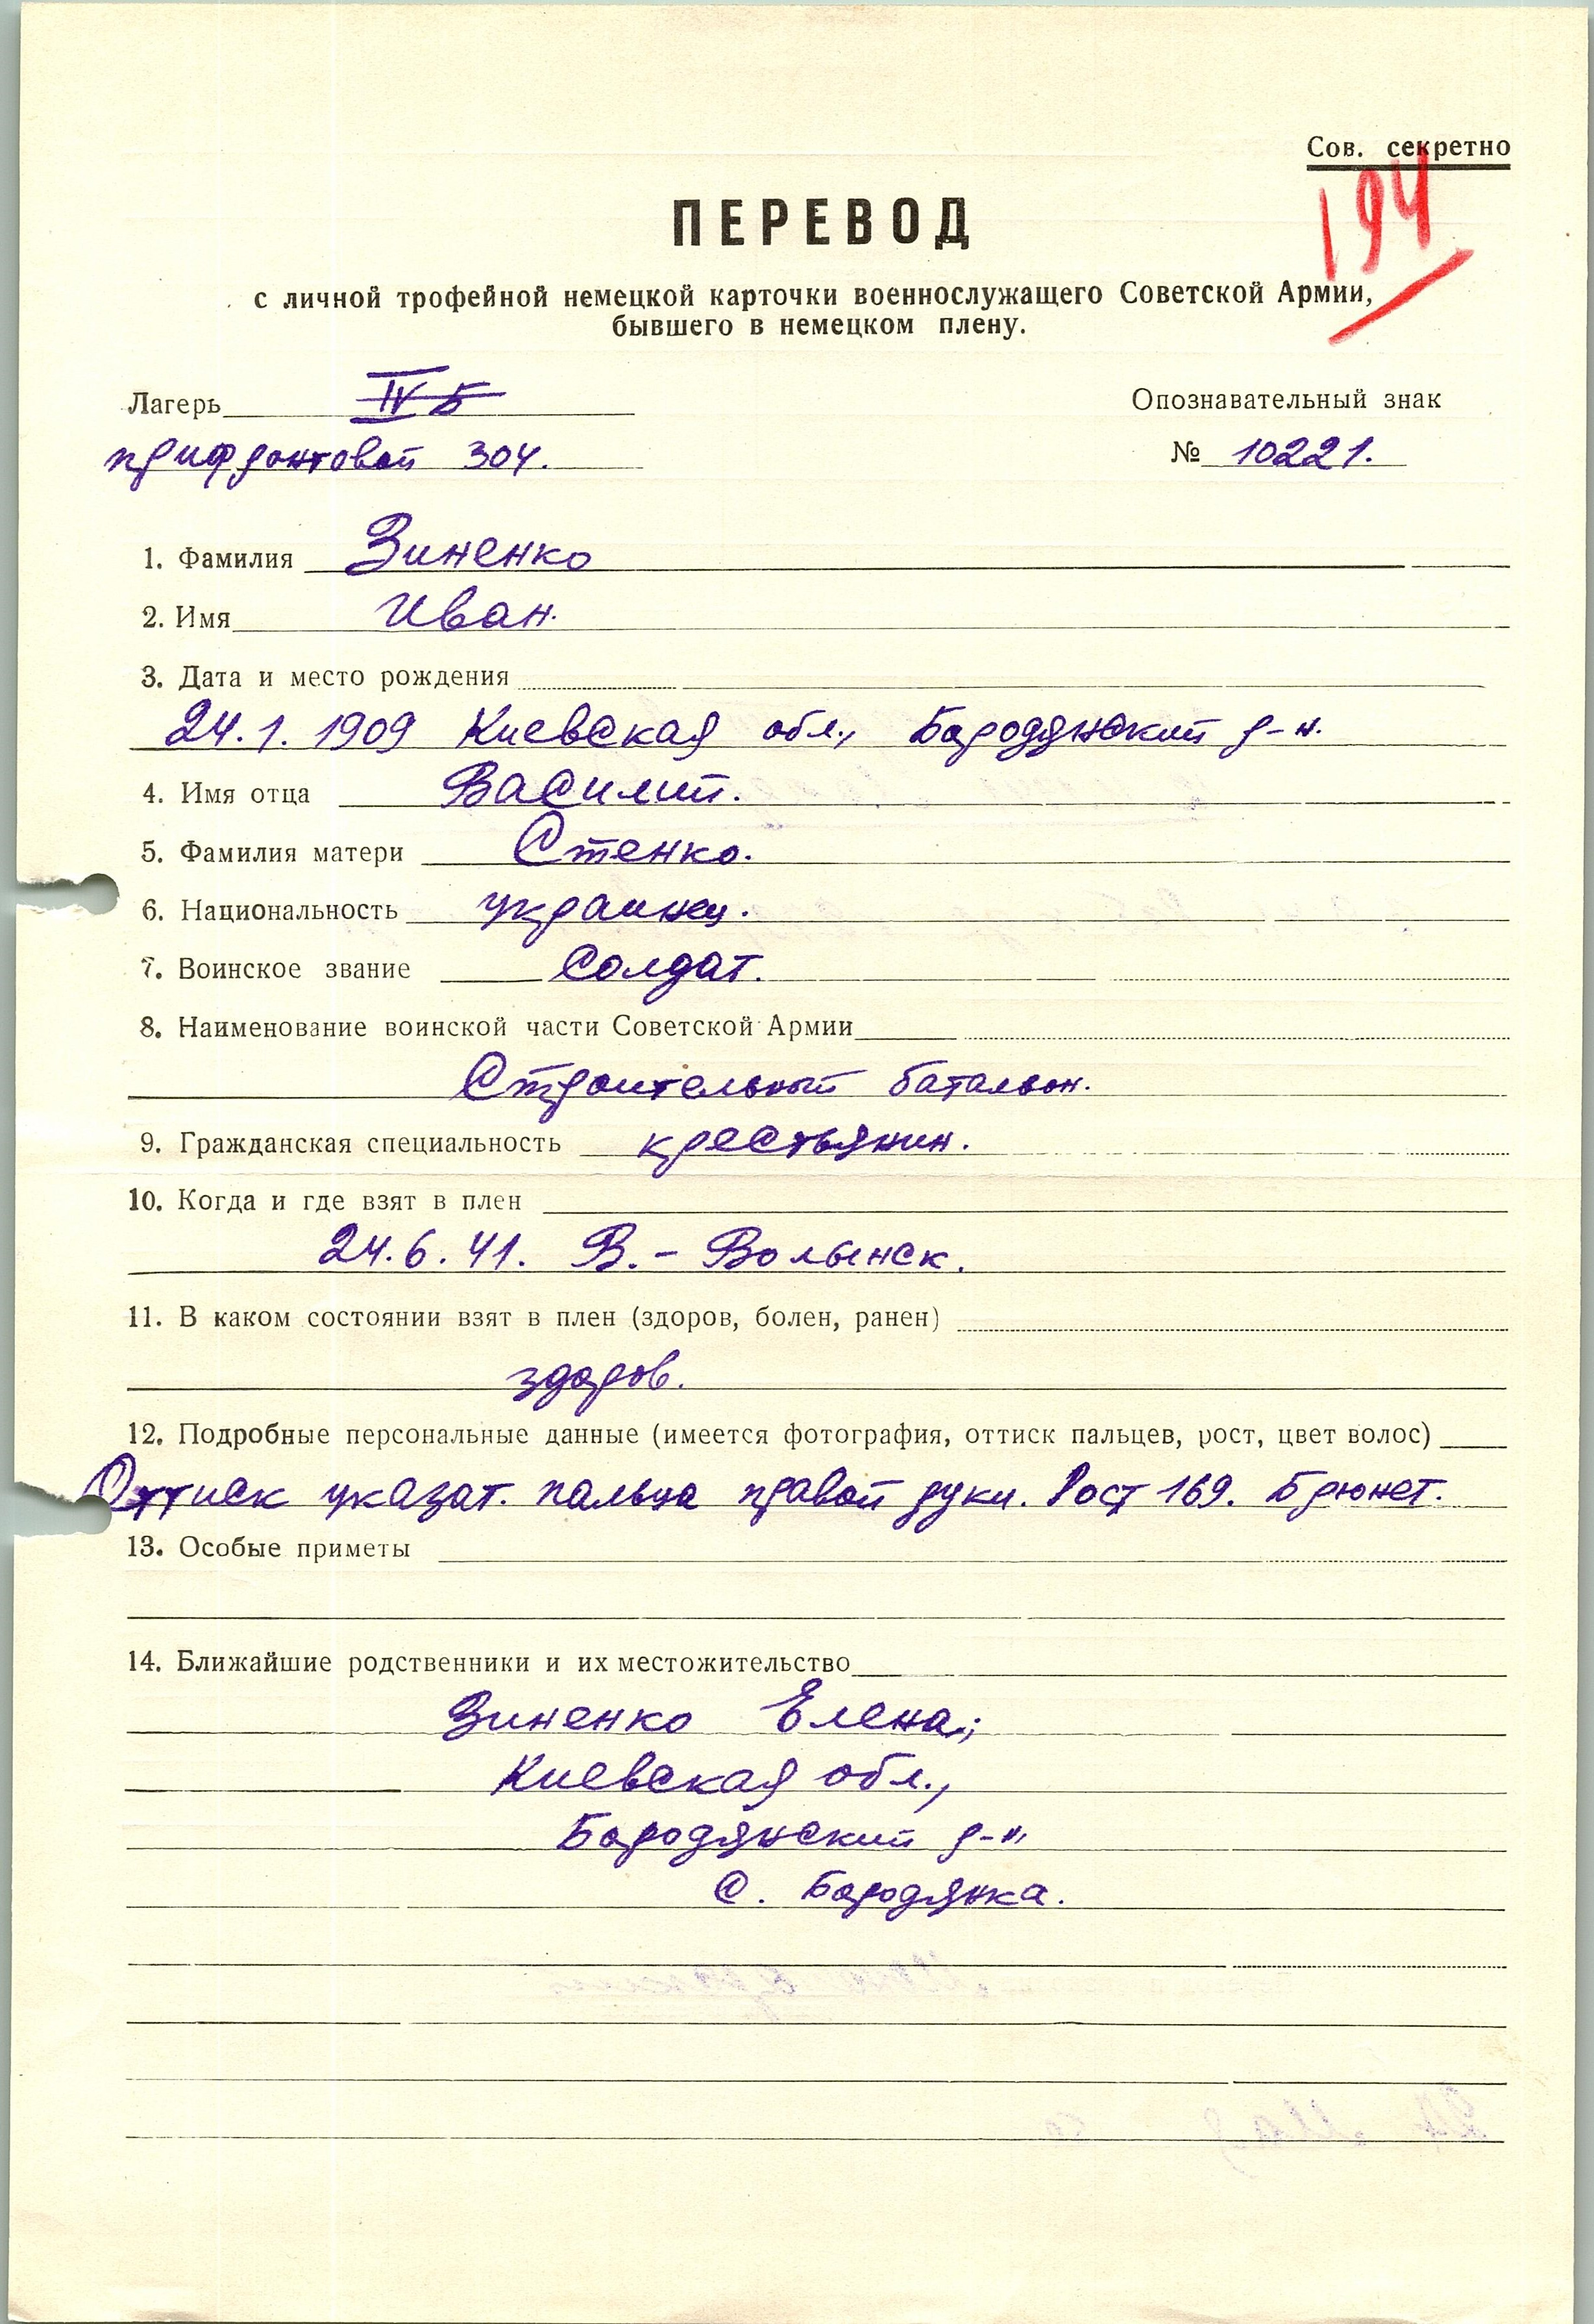 Сов. секретно
194
ПЕРЕВОД
с личной трофейной немецкой карточки военнослужащего Советской Армии,
бывшего в немецком плену.
Лагерь IV Б
Опознавательный знак
прифронтовой 304.
№ 10221.
1. Фамилия Зиненко
2. Имя Иван.
3. Дата и место рождения
24.1.1909 Киевская обл., Бородянский р-н.
4. Имя отца Василий.
5. Фамилия матери Стенко.
6. Национальность украинец.
7. Воинское звание Солдат.
8. Наименование воинской части Советской Армии
Строительный батальон.
9. Гражданская специальность крестьянин.
10. Когда и где взят в плен
24.6.41. В.-Волынск.
11. В каком состоянии взят в плен (здоров, болен, ранен)
здоров.
12. Подробные персональные данные (имеется фотография, оттиск пальцев, рост, цвет волос)
Оттиск указат. пальца правой руки. Рост 169. Брюнет.
13. Особые приметы
14. Ближайшие родственники и их местожительство
Зиненко Елена;
Киевская обл.,
Бородянский р-н,
с. Бородянка.